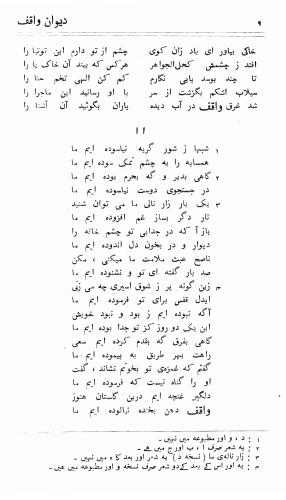 ۹ دیوان واقف
خاکی بیاور ای باد زان کوی چشم از تو دارم این توتیا را
افتد ز چشمش کحل‌الجواهر هرکس که بیند آن خاک پا را
تا چند بوسد پایی نگارم کم کن الهی تخم حنا را
سیلاب اشکم بگزشت از سر با او رسانید این ماجرا را
شد غرق واقف در آب دیده یاران بگوئید آن آشنا را
۱۱
۱ شبها ز شور گریه نیاسوده ایم ما
همسایه را به چشم نمک سوده ایم ما
۲ گاهی بدیر و گه بحرم بوده ایم ما
در جستجوی دوست نیاسوده ایم ما
۳ یک بار زار نالی ما می توان شنید
تار دگر بساز غم افزوده ایم ما
باز آ که در جدایی تو چشم خانه را
دیوار و در بخون دل اندوده ایم ما
ناصح عبث سلامت ما میکنی ، مکن
صد بار گفته ای تو و نشنوده ایم ما
۴ زین گونه پر ز شوق اسیری چه می زنی
ایدل قفس برای تو فرموده ایم ما
آگه نبوده ایم ز بود و نبود خویش
این یک دو روز کز تو جدا بوده ایم ما
گاهی بفرق گه بقدم کرده ایم سعی
راهت بهر طریق به پیموده ایم ما
گفتم که غمزه‌ی تو بخونم نشاند ، گفت
او را گناه نیست که فرموده ایم ما
دلگیر غنچه ایم درین گلستان هنوز
واقف دهن بخنده نیالوده ایم ما
۱ : د ، و اور مطبوعه میں نہیں -
۲ : یه شعر صرف ا ، ب اور ج میں ہے -
۳ : زار ناله‌ی ما ( نسخه د ) یه شعر اور بعد کا ه میں نہیں -
۴ : یه اور اس کے بعد کے دو شعر صرف نسخه و اور مطبوعه میں ہیں -